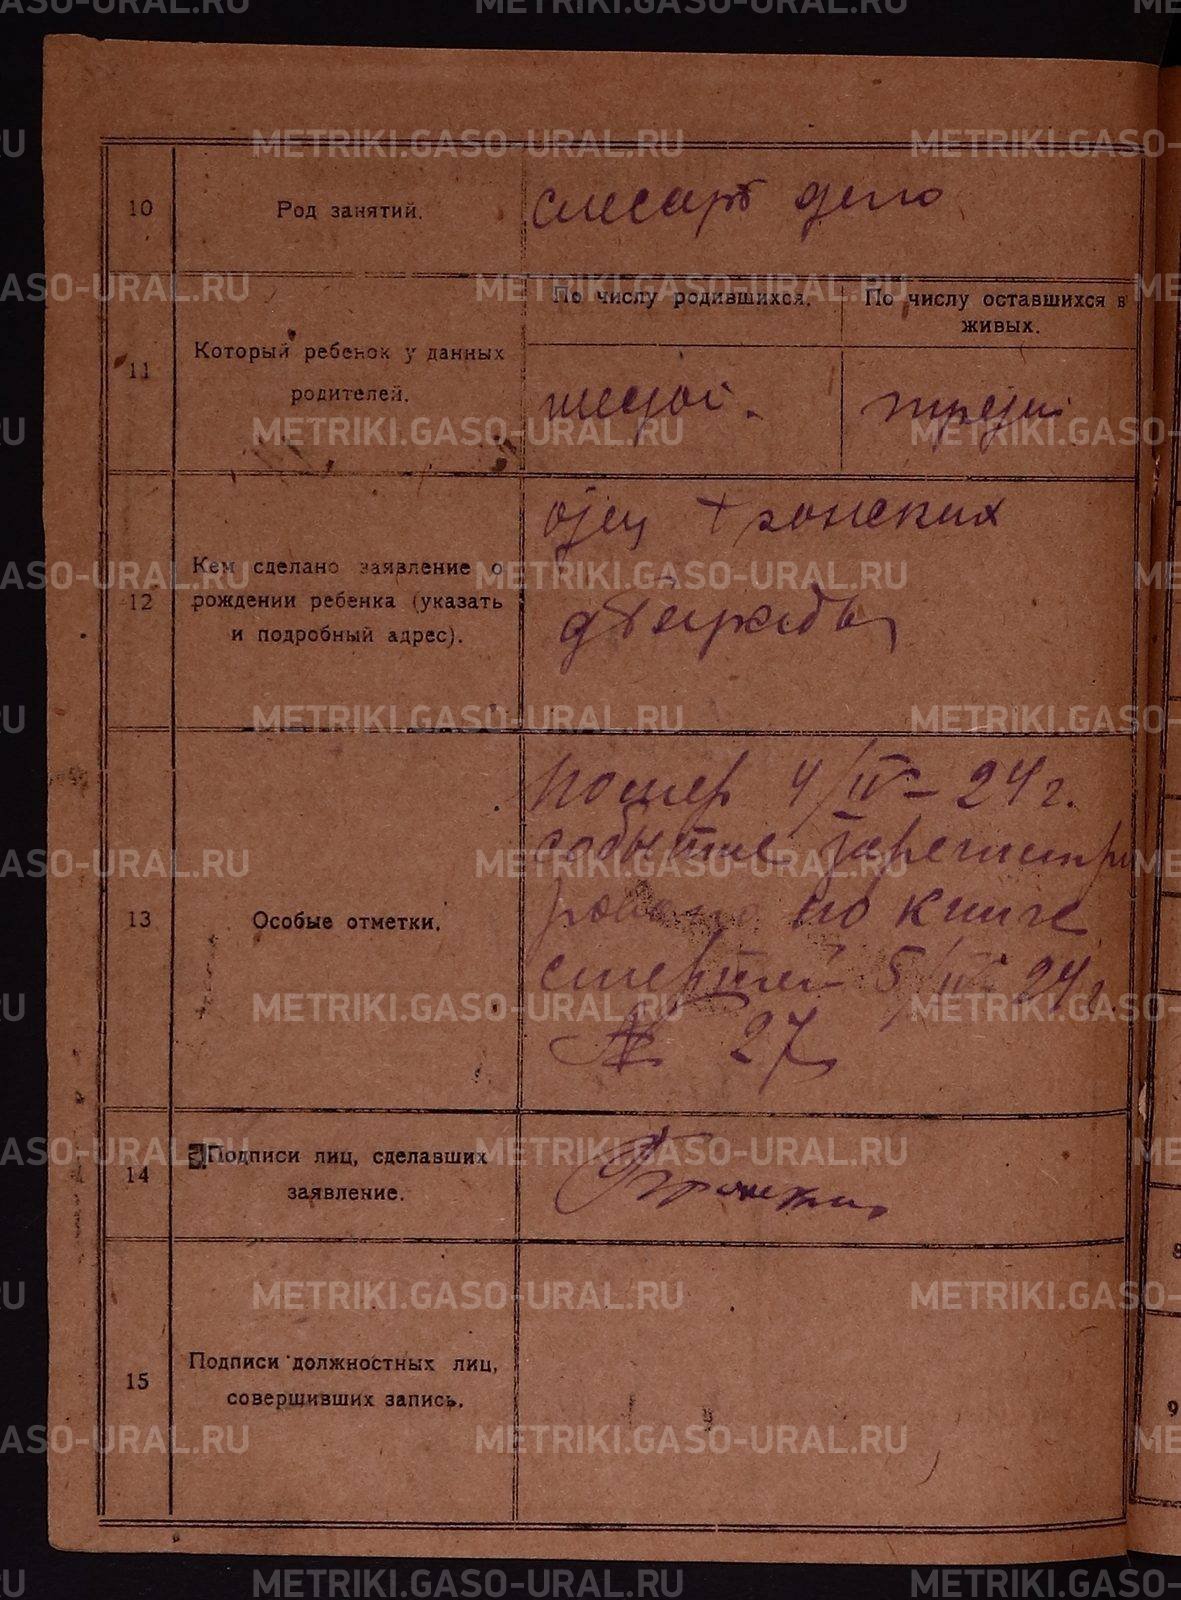 10
Род занятий.
слесарь депо
11
Который ребенок у данных
родителей.
По числу родившихся.
По числу оставшихся в
живых.
шестой.
третий
12
Кем сделано заявление о
рождении ребенка (указать
и подробный адрес).
отец
13
Особые отметки.
Помер 4/IV-24 г.
событие зарегистри
ровано по книге
смертей 5/IV-24 г.
№ 27
14
Подписи лиц, сделавших
заявление.
15
Подписи должностных лиц,
совершивших запись.
8
9
METRIKI.GASO-URAL.RU